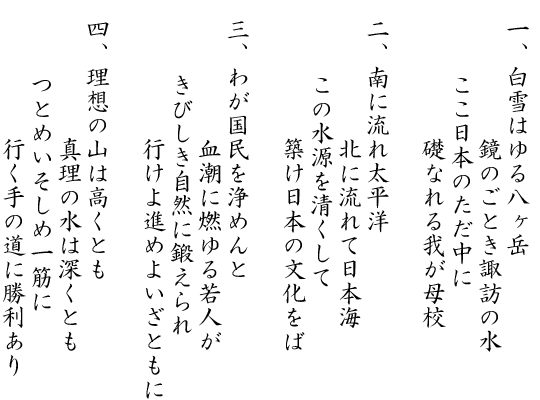 一、白雪はゆる八ヶ岳
鏡のごとき諏訪の水
ここ日本のただ中に
礎なれる我が母校
二、南に流れ太平洋
北に流れて日本海
この水源を清くして
築け日本の文化をば
三、わが国民を浄めんと
血潮に燃ゆる若人が
きびしき自然に鍛えられ
行けよ進めよいざともに
四、理想の山は高くとも
真理の水は深くとも
つとめいそしめ一筋に
行く手の道に勝利あり